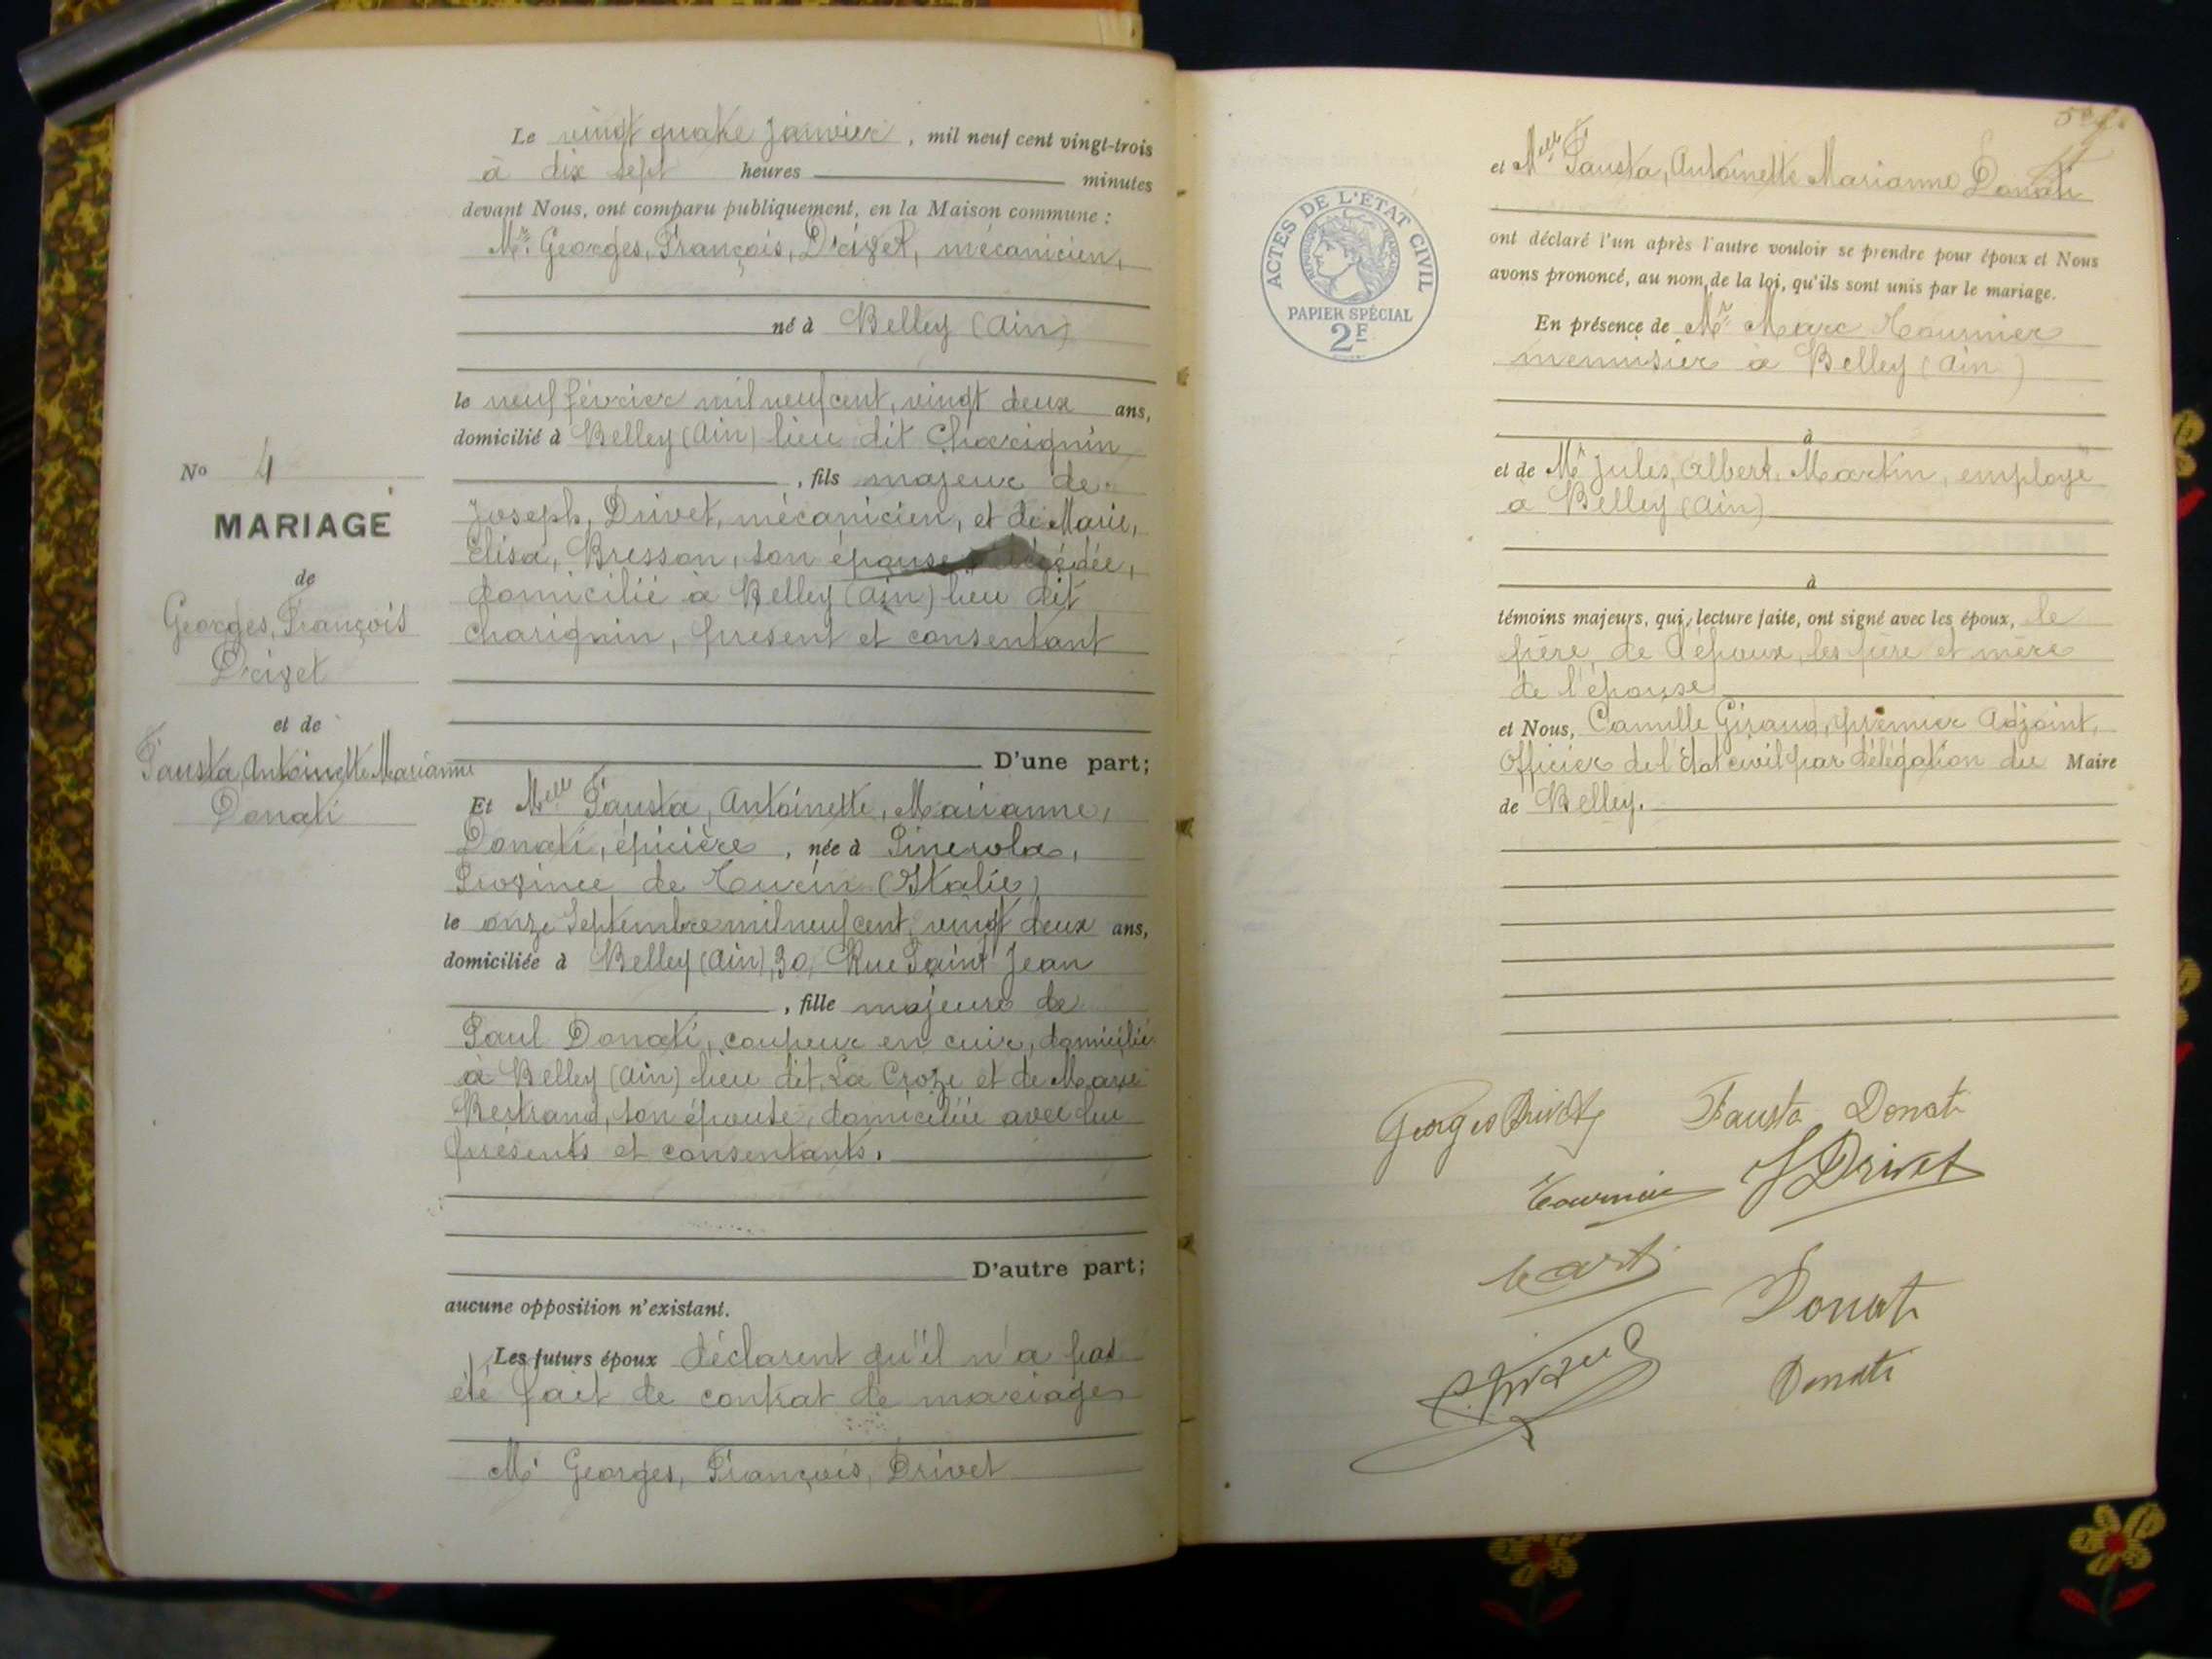 Le vingt quatre Janvier, mil neuf cent vingt-trois
à dix sept heures minutes
devant Nous, ont comparu publiquement, en la Maison commune :
Mr. Georges, François, Drivet, mécanicien,
né à Belley (Ain)
le neuf février mil neuf cent, vingt deux ans,
domicilié à Belley (Ain) lieu dit Charignin
, fils majeur de
Joseph, Drivet, mécanicien, et de Marie,
Elisa, Bresson, son épouse décédée,
domicilié à Belley (Ain) lieu dit
Charignin, présent et consentant
D'une part;
Et Melle Fausta, Antoinette, Marianne,
Donati, épicière, née à Pinerola,
Province de Turin (Italie)
le onze Septembre mil neuf cent, vingt deux ans,
domiciliée à Belley (Ain), 30, Rue Saint Jean
, fille majeure de
Paul Donati, coupeur en cuir, domicilié
à Belley (Ain) lieu dit, La Croze et de Marie
Bertrand, son épouse, domiciliée avec lui
présents et consentants.
D'autre part;
aucune opposition n'existant.
Les futurs époux déclarent qu'il n'a pas
été fait de contrat de mariage
Mr Georges, François, Drivet
No 4
MARIAGE
de
Georges, François
Drivet
et de
Fausta, Antoinette Marianne
Donati
ACTES DE L'ÉTAT CIVIL
PAPIER SPÉCIAL
2F
et Melle Fausta, Antoinette Marianne Donati
ont déclaré l'un après l'autre vouloir se prendre pour époux et Nous
avons prononcé, au nom de la loi, qu'ils sont unis par le mariage.
En présence de Mr Marc Tournier
menuisier à Belley (Ain)
à
et de Mr Jules, Albert, Martin, employé
à Belley (Ain)
à
témoins majeurs, qui, lecture faite, ont signé avec les époux, le
père de l'époux, les père et mère
de l'épouse
et Nous, Camille Giraud, premier Adjoint,
Officier de l'Etat civil par délégation du Maire
de Belley.
Georges Drivet Fausta Donati
Tournier J Drivet
Donati
Donati